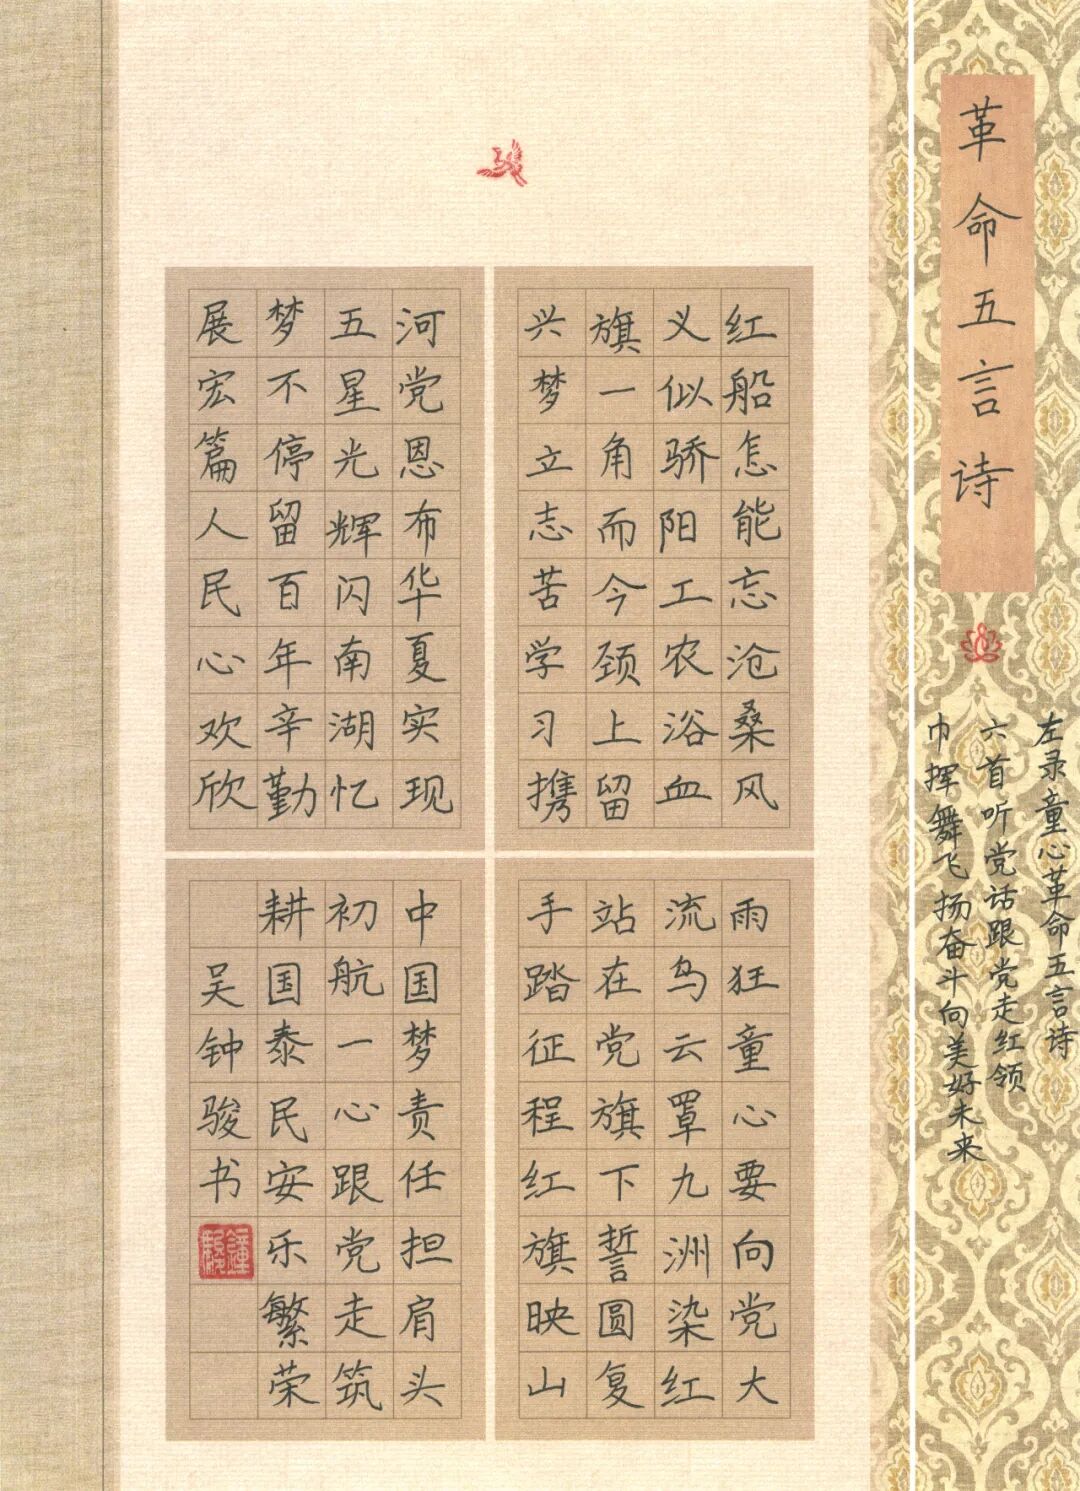 革命五言诗
左录童心革命五言诗
六首听党话跟党走红领
巾挥舞飞扬奋斗向美好未来
红船怎能忘沧桑风雨狂童心要向党大
义似骄阳工农浴血流乌云罩九洲染红
旗一角而今颈上留站在党旗下誓圆复
兴梦立志苦学习携手踏征程红旗映山
河党恩布华夏实现中国梦责任担肩头
五星光辉闪南湖忆初航一心跟党走筑
梦不停留百年辛勤耕国泰民安乐繁荣
展宏篇人民心欢欣吴钟骏书
鐘駿